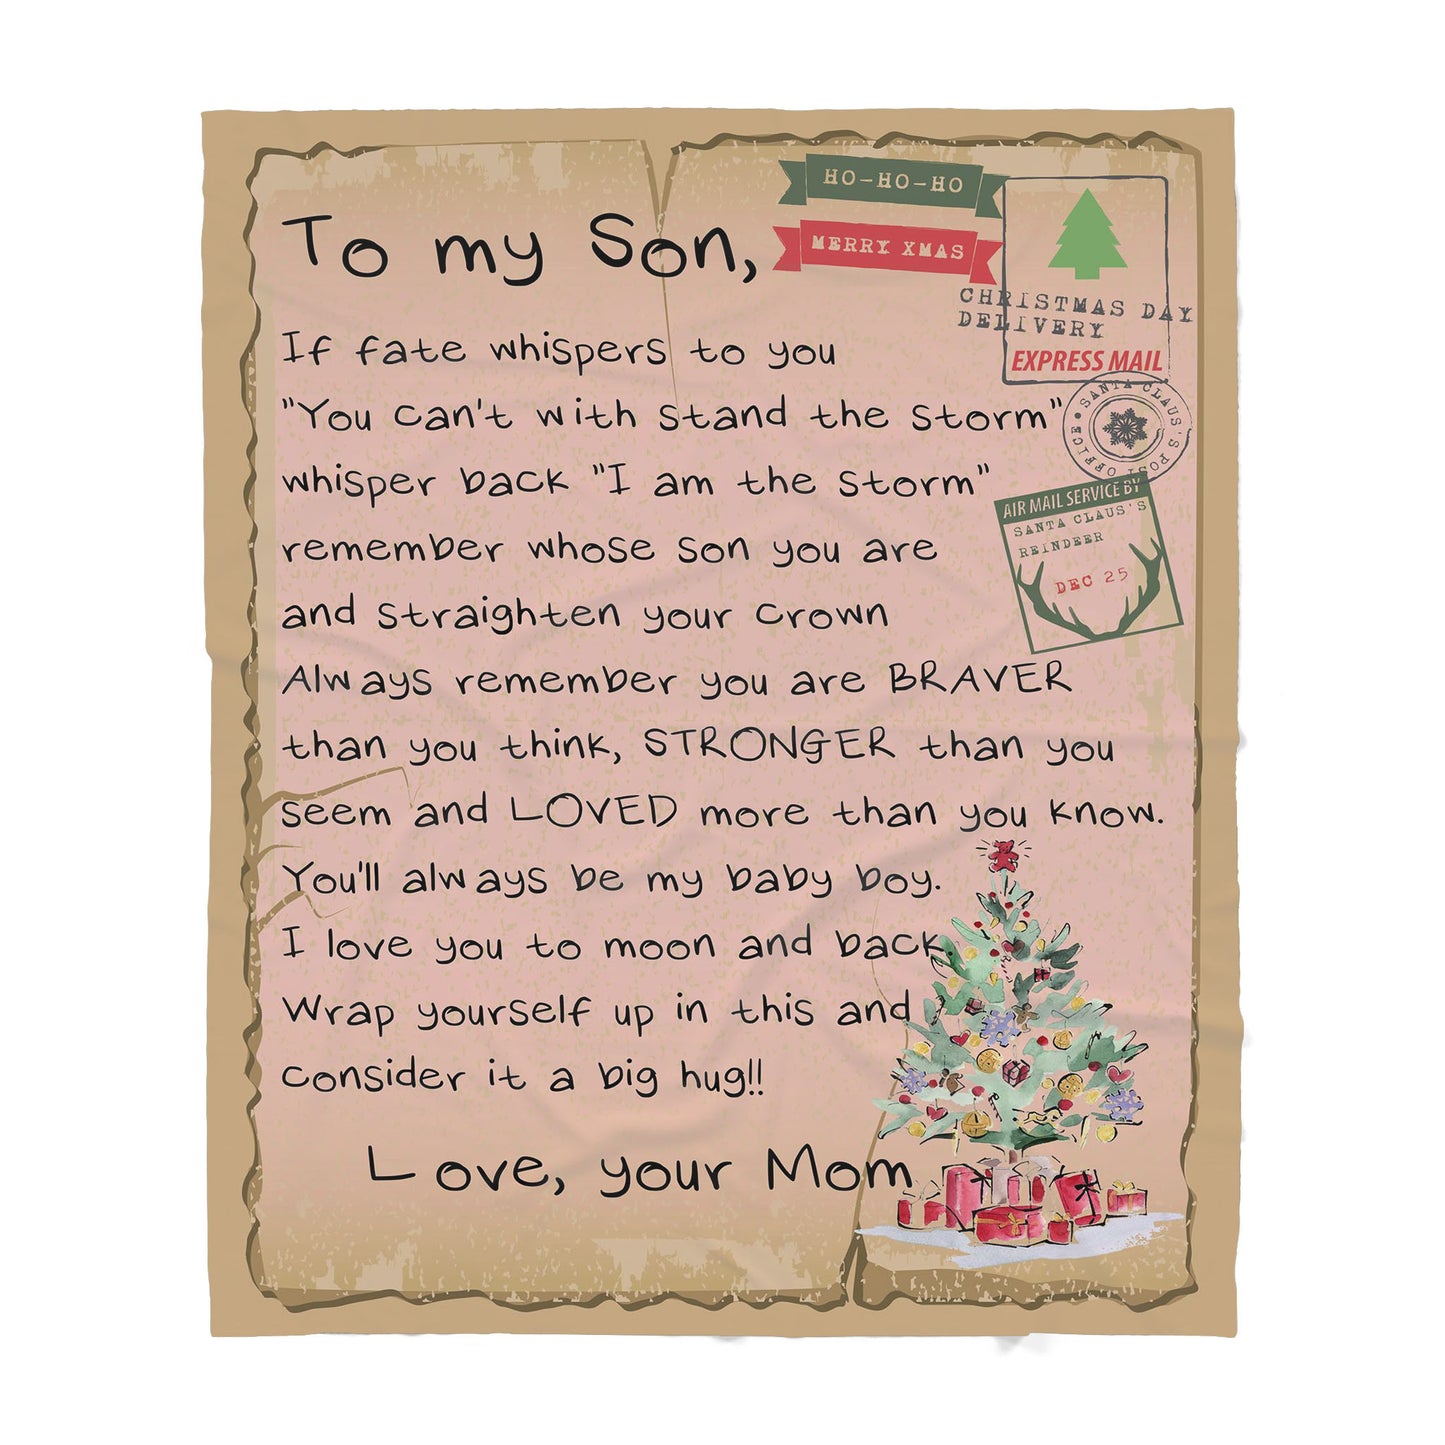 HO-HO-HO
MERRY XMAS
To my Son,
CHRISTMAS DAY
DELIVERY
EXPRESS MAIL
If fate whispers to you
"You can't with stand the storm"
whisper back "I am the storm"
remember whose son you are
and straighten your crown
Always remember you are BRAVER
than you think, STRONGER than you
seem and LOVED more than you know.
You'll always be my baby boy.
I love you to moon and back
Wrap yourself up in this and
consider it a big hug!!
Love, your Mom
SANTA CLAUS'S POST OFFICE
AIR MAIL SERVICE BY
SANTA CLAUS'S
REINDEER
DEC 25